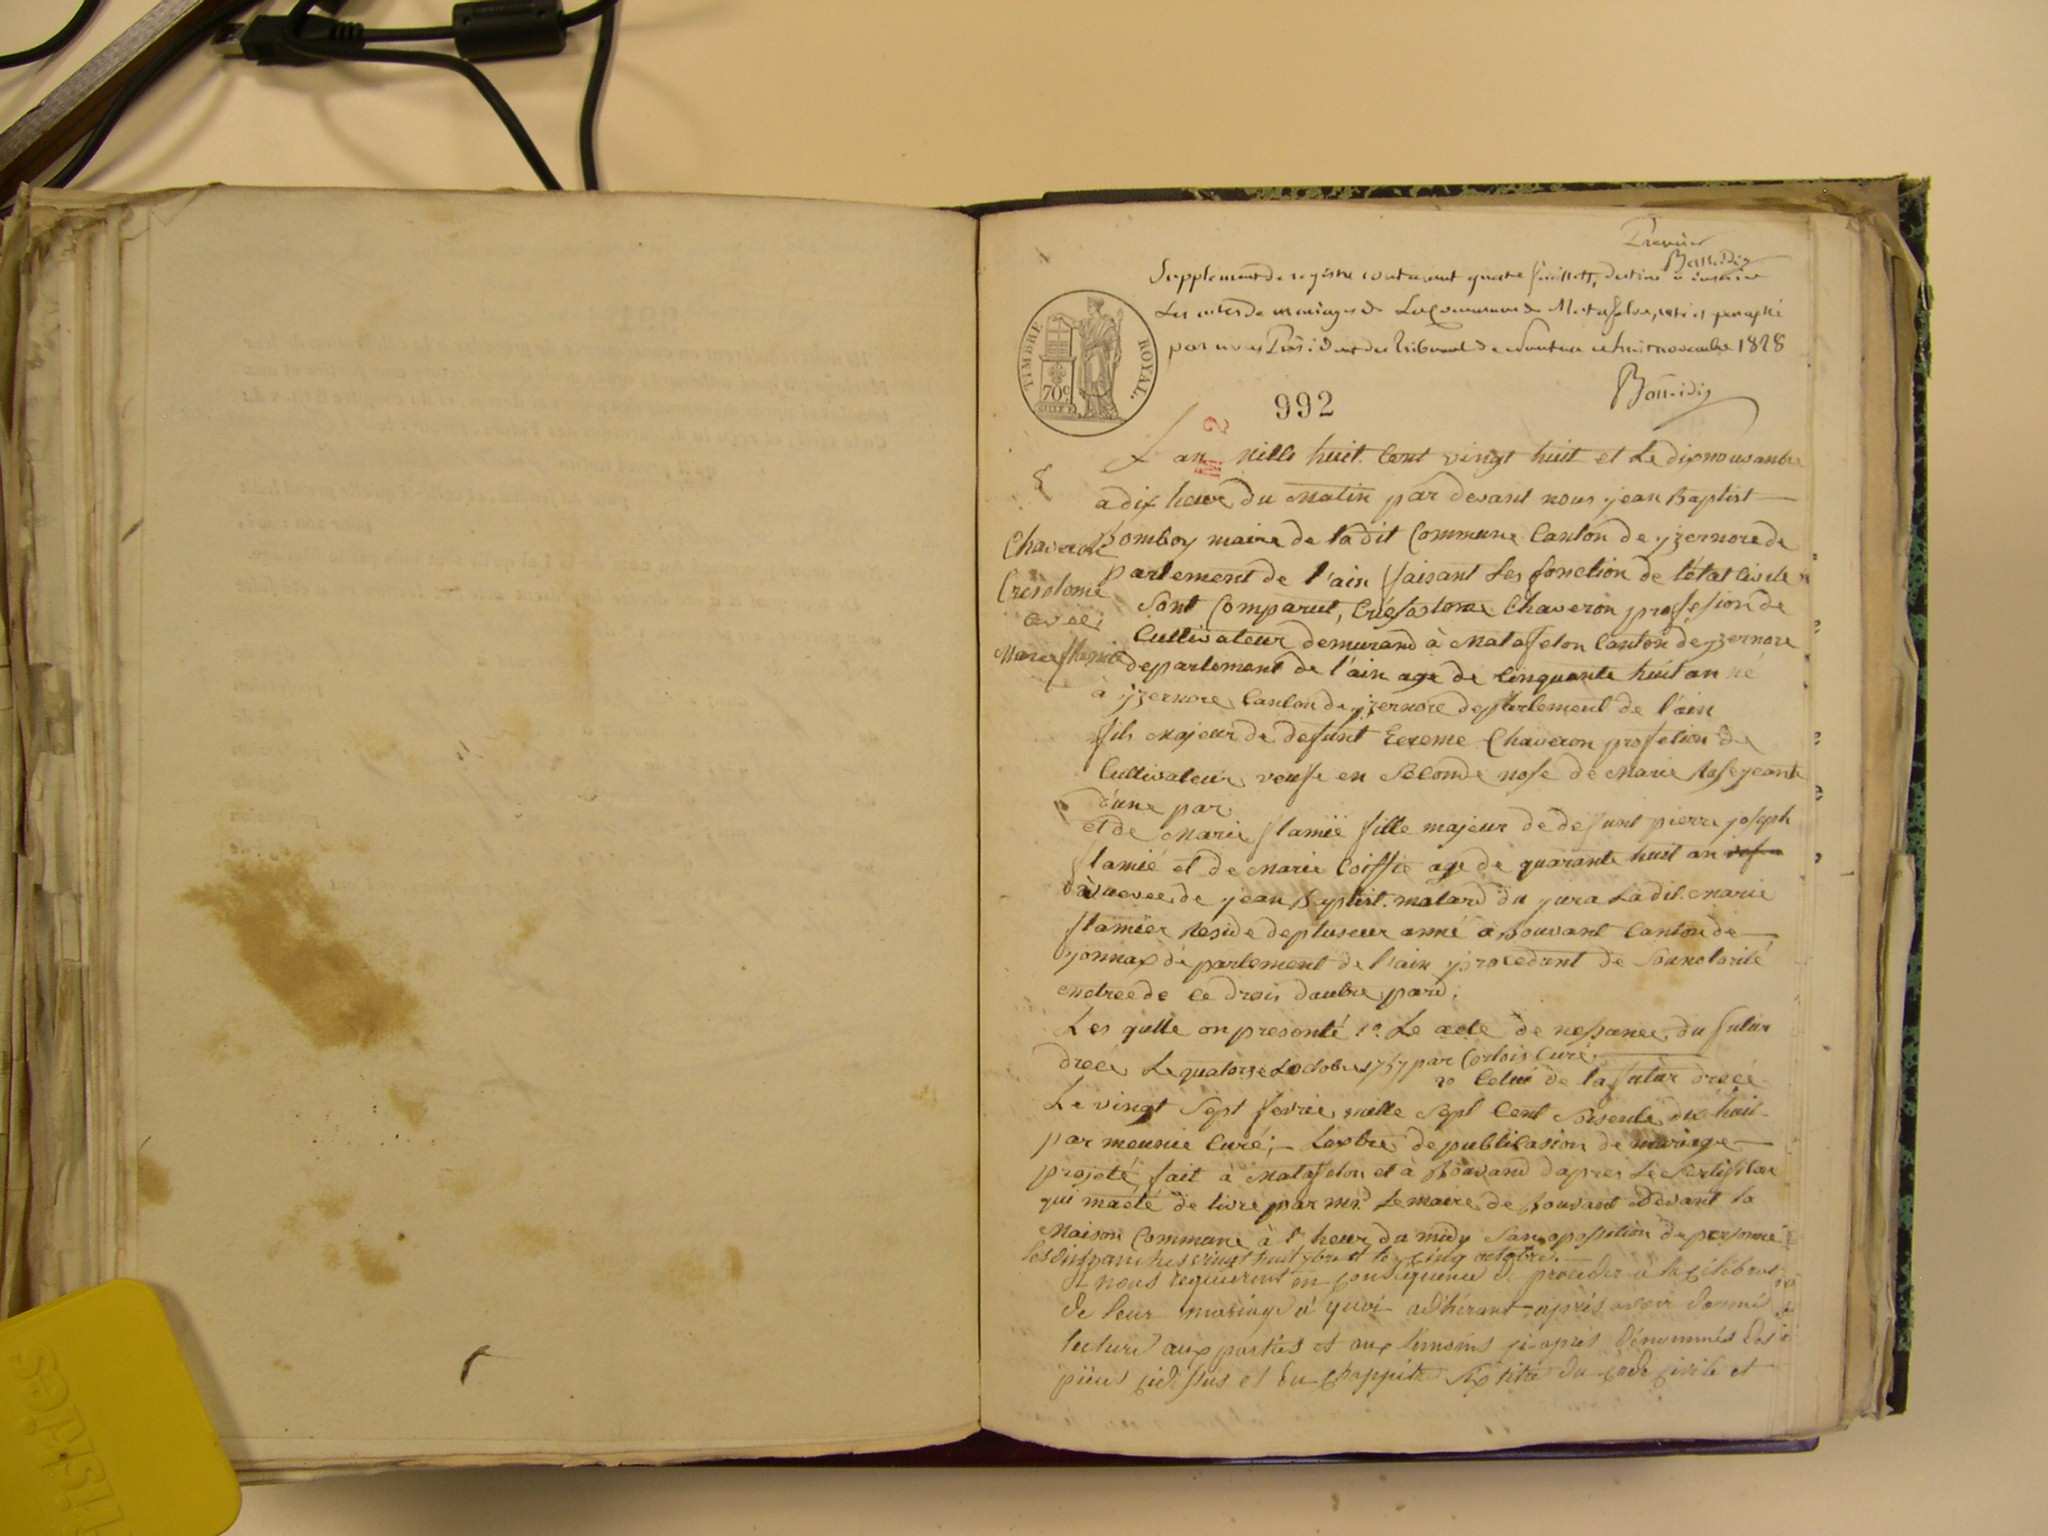 Premier
Supplement de registre contenant quatre feuillets, destiné à inscrire
Les actes de mariages de La Commune de Matafelon, coté et paraphé
par nous Président du Tribunal de Nantua ce huit novembre 1828
TIMBRE ROYAL
70c
992
L'an mille huit Cent vingt huit et Le dix nouvanbre
a dix heure du matin par devant nous jean Baptist
Bomboy maire de ladit Commune Canton de yzernore de
partement de l'ain faisant Les fonction de l'état Civile
Chaveron
Crisolome
avec
Marie flamié
Sont Comparut, Crésostome Chaveron profesion de
Cultivateur demurand à Matafelon Canton de yzernore
departement de l'ain age de Cinquante huit an né
à yzernore Canton de yzernore departement de l'ain
fils majeur de defunt Eereme Chaveron profesion de
Cultivateur veufe en Seconde nose de Marie
d'une par
et de Marie flamïe fille majeur de defunt pierre joseph
flamié et de Marie Coiffie age de quarante huit an
veuvee de jean Baptist. matard du jura Ladit Marie
flamïer Reside deplusieur anné à Bouvant Canton de
Oyonnax département de l'ain procedant de
de Ce drois daubre pard.
Les quelle on presenté 1o. Le acte de nessance du futur
drece Le quatorze octobre 1757 par Corlois Curé
2o Celui de la futur drecé
Le vingt Sept fevrie mille Sept Cent Soisente dix huit
par meunie Curé; Lexbre de publicasion de mariage
projeté fait à Matafelon et à Bouvand dapres Le
qui maeté de livre par Mr. Le maire de Bouvant devant la
Maison Commune à heur du midy San oposition de personne
les dimanches vingt huit 7bre et le cinq octobre.
nous requierent en conséquence de proceder à la célébrat
de leur mariage à quoi adhérant après avoir donné
lecture aux parties et aux témoins ci-après dénommés des
pièces cidessus et du chappitre six titre du code civile et